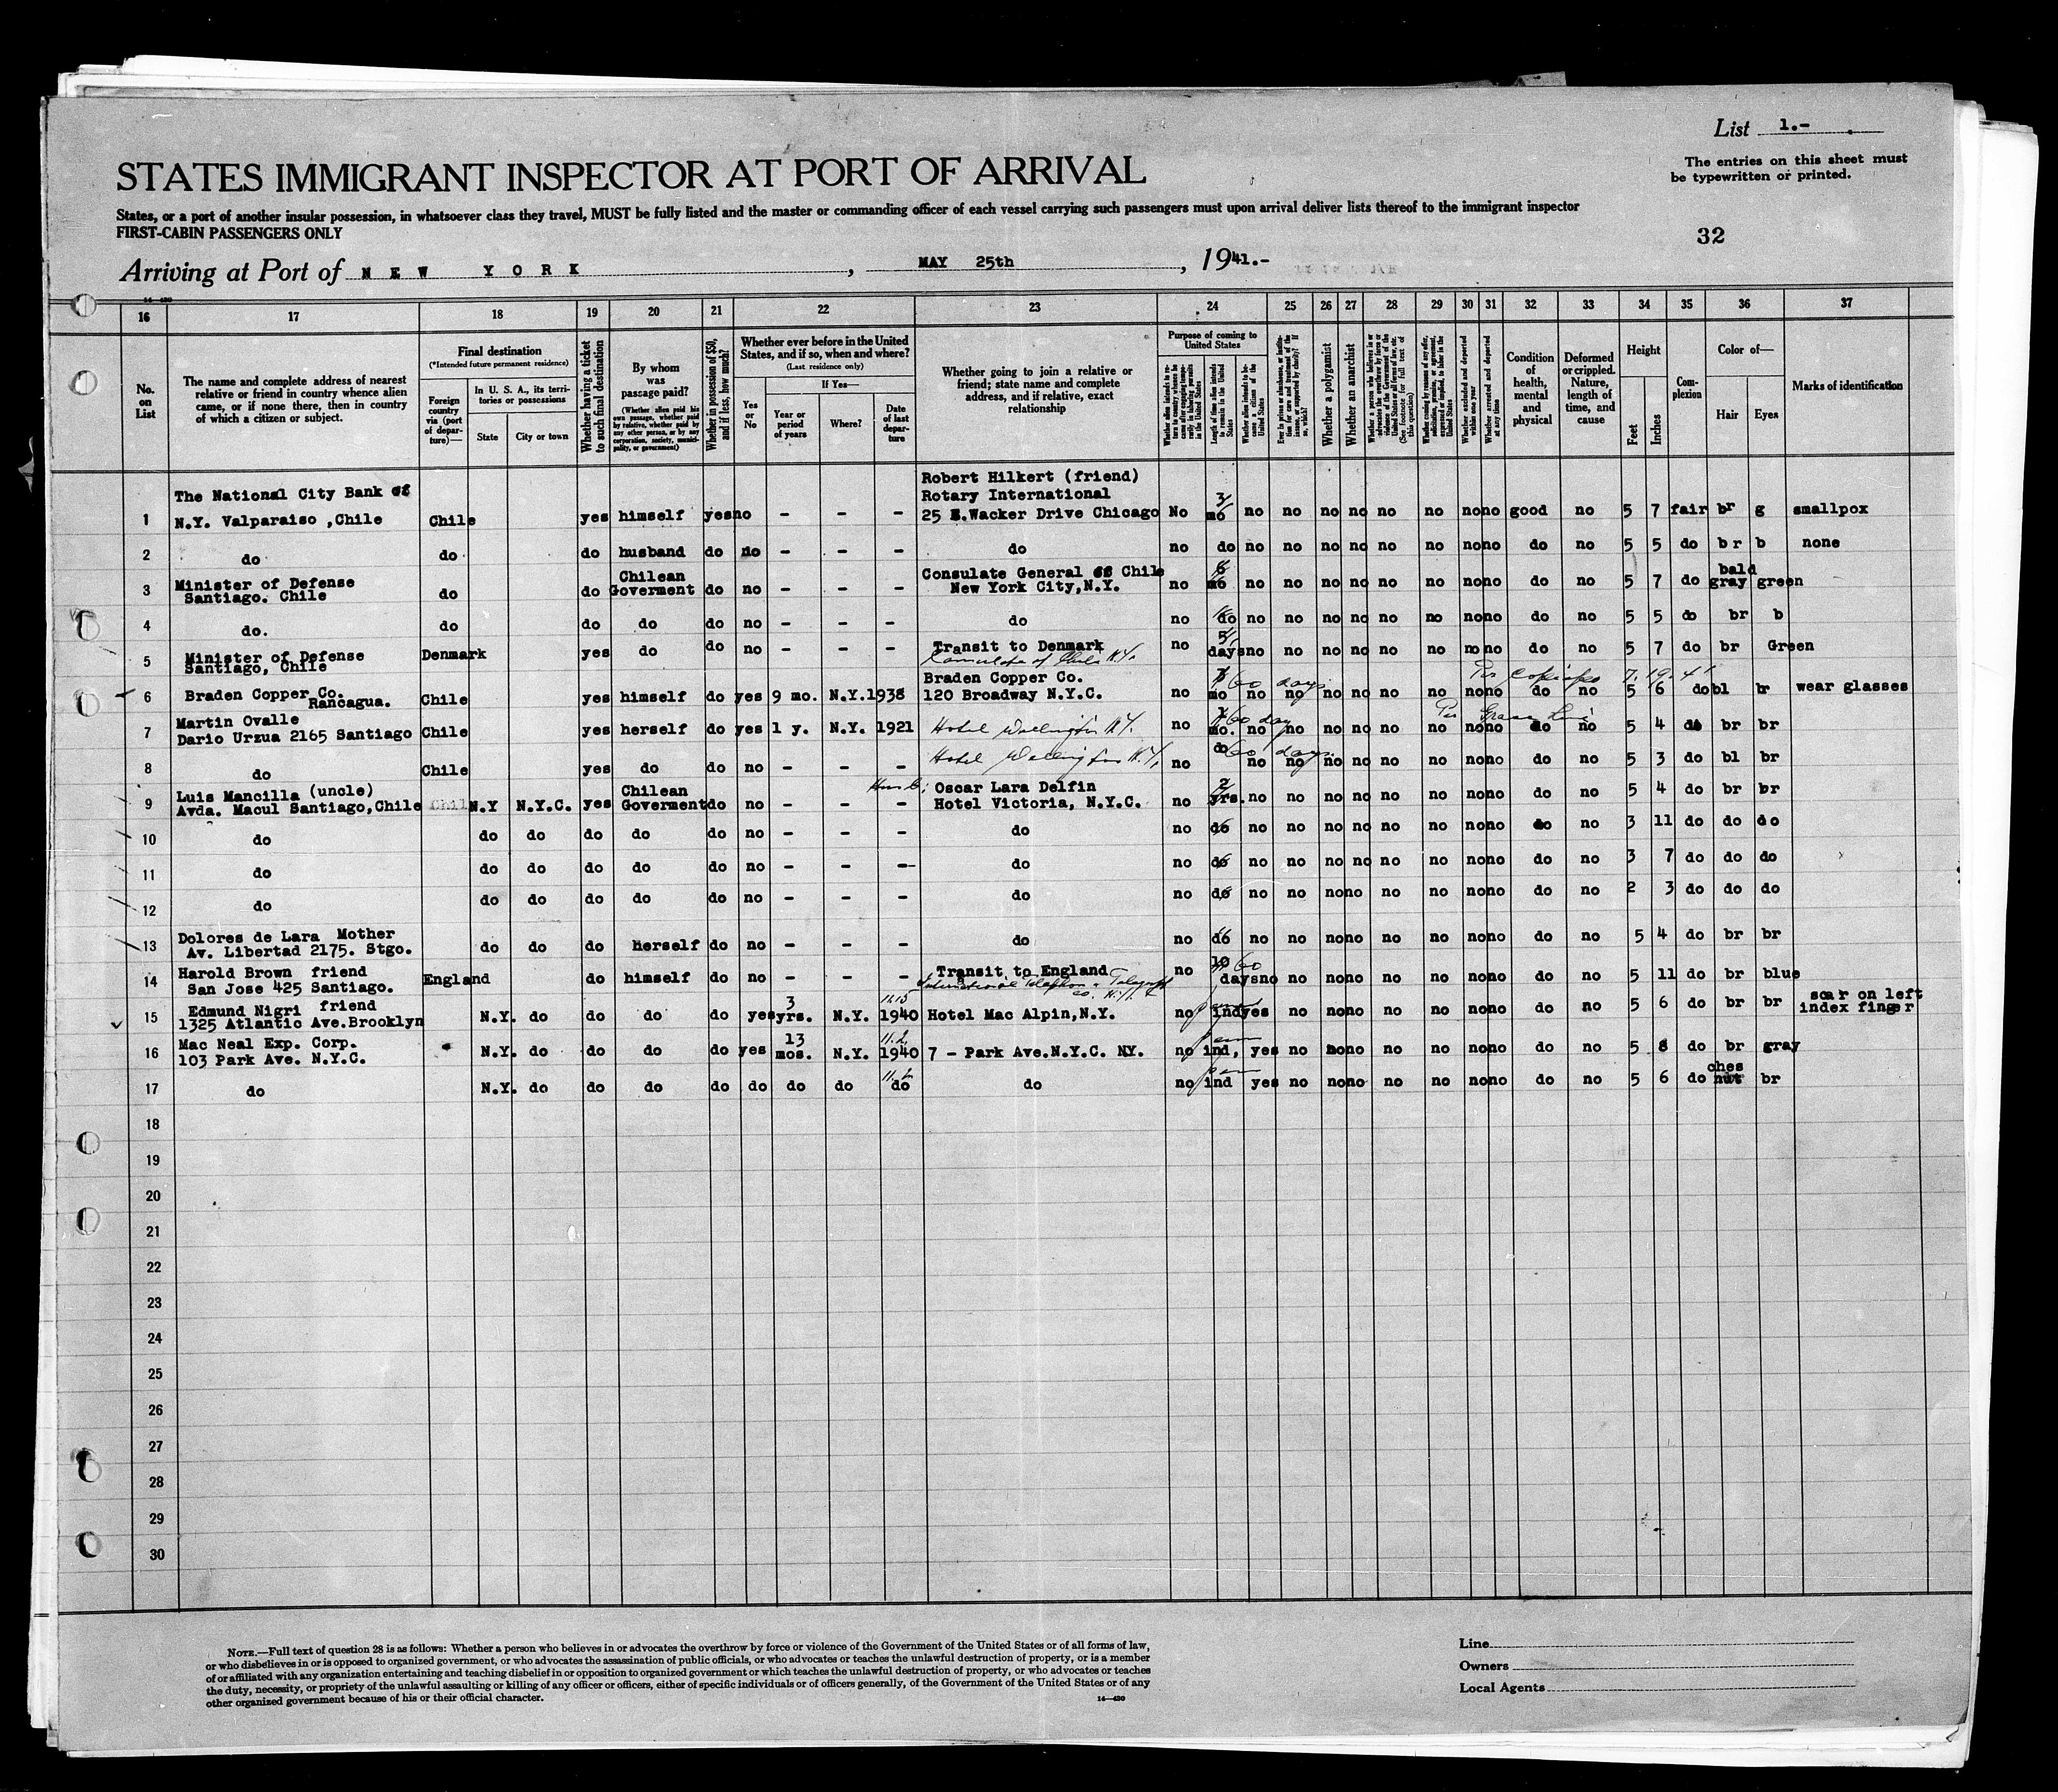 List 1.-
STATES IMMIGRANT INSPECTOR AT PORT OF ARRIVAL
The entries on this sheet must
be typewritten or printed.
States, or a port of another insular possession, in whatsoever class they travel, MUST be fully listed and the master or commanding officer of each vessel carrying such passengers must upon arrival deliver lists thereof to the immigrant inspector
FIRST-CABIN PASSENGERS ONLY
32
Arriving at Port of NEW YORK, MAY 25th, 1941.-
14-430
16 17 18 19 20 21 22 23 24 25 26 27 28 29 30 31 32 33 34 35 36 37
No. on List
The name and complete address of nearest relative or friend in country whence alien came, or if none there, then in country of which a citizen or subject.
Final destination
(*Intended future permanent residence)
Foreign country via (port of departure)—
In U. S. A., its territories or possessions
State
City or town
Whether having a ticket to such final destination
By whom was passage paid?
(Whether alien paid his own passage, whether paid by relative, whether paid by any other person, or by any corporation, society, municipality, or government)
Whether in possession of $50, and if less, how much?
Whether ever before in the United States, and if so, when and where?
(Last residence only)
Yes or No
If Yes—
Year or period of years
Where?
Date of last departure
Whether going to join a relative or friend; state name and complete address, and if relative, exact relationship
Purpose of coming to United States
Length of time alien intends to remain in the United States
Whether alien intends to become a citizen of the United States
Whether a polygamist
Whether an anarchist
Whether excluded and deported within one year
Whether arrested and deported at any time
Condition of health, mental and physical
Deformed or crippled. Nature, length of time, and cause
Height
Feet
Inches
Complexion
Color of—
Hair
Eyes
Marks of identification
Robert Hilkert (friend)
The National City Bank of Rotary International 3
1 N.Y. Valparaiso ,Chile Chile yes himself yes no - - - 25 E.Wacker Drive Chicago No mo no no no no no no no no good no 5 7 fair br g smallpox
2 do do do husband do no - - - do no do no no no no no no no no do no 5 5 do br b none
Minister of Defense Chilean Consulate General of Chile 6 bald
3 Santiago. Chile do do Goverment do no - - - New York City,N.Y. no mo no no no no no no no no do no 5 7 do gray green
4 do. do do do do no - - - do no do no no no no no no no no do no 5 5 do br b
Minister of Defense Transit to Denmark 5
5 Santiago, Chile Denmark yes do do no - - - Consulate of Chile N.Y. no days no no no no no no no no do no 5 7 do br Green
Braden Copper Co. Braden Copper Co. 60 days Per Copiapo 7.19.41
6 Rancagua. Chile yes himself do yes 9 mo. N.Y. 1938 120 Broadway N.Y.C. no mo no no no no no no no no do no 5 6 do bl br wear glasses
Martin Ovalle 60 day Per Grace Line
7 Dario Urzua 2165 Santiago Chile yes herself do yes 1 y. N.Y. 1921 Hotel Wellington N.Y. no mo. no no no no no no no no do no 5 4 do br br
8 do Chile yes do do no - - - Hotel Wellington N.Y. no do 60 days no no no no no no no no do no 5 3 do bl br
Luis Mancilla (uncle) Chilean Husb; Oscar Lara Delfin 2
9 Avda. Macul Santiago,Chile Chil N.Y N.Y.C. yes Goverment do no - - Hotel Victoria, N.Y.C. no yrs. no no no no no no no no do no 5 4 do br br
10 do do do do do do no - - - do no do no no no no no no no no do no 3 11 do do do
11 do do do do do do no - - - do no do no no no no no no no no do no 3 7 do do do
12 do do do do do do no - - - do no do no no no no no no no no do no 2 3 do do do
Dolores de Lara Mother
13 Av. Libertad 2175. Stgo. do do do herself do no - - - do no do no no no no no no no no do no 5 4 do br br
Harold Brown friend Transit to England 10 60
14 San Jose 425 Santiago. England do himself do no - - - International Telephon & Telegraph Co. N.Y. no days no no no no no no no no do no 5 11 do br blue
Edmund Nigri friend 3 scar on left
15 1325 Atlantic Ave.Brooklyn N.Y. do do do do yes yrs. N.Y. 1940 Hotel Mac Alpin,N.Y. no ind yes no no no no no no no do no 5 6 do br br index finger
Mac Neal Exp. Corp. 13 11.2 perm
16 103 Park Ave. N.Y.C. N.Y. do do do do yes mos. N.Y. 1940 7 - Park Ave.N.Y.C. NY. no ind, yes no no no no no no no do no 5 8 do br gray
11.2 perm ches
17 do N.Y. do do do do do do do do do no ind yes no no no no no no no do no 5 6 do nut br
18
19
20
21
22
23
24
25
26
27
28
29
30
NOTE.—Full text of question 28 is as follows: Whether a person who believes in or advocates the overthrow by force or violence of the Government of the United States or of all forms of law,
or who disbelieves in or is opposed to organized government, or who advocates the assassination of public officials, or who advocates or teaches the unlawful destruction of property, or is a member
of or affiliated with any organization entertaining and teaching disbelief in or opposition to organized government or which teaches the unlawful destruction of property, or who advocates or teaches
the duty, necessity, or propriety of the unlawful assaulting or killing of any officer or officers, either of specific individuals or of officers generally, of the Government of the United States or of any
other organized government because of his or their official character.
14-430
Line
Owners
Local Agents